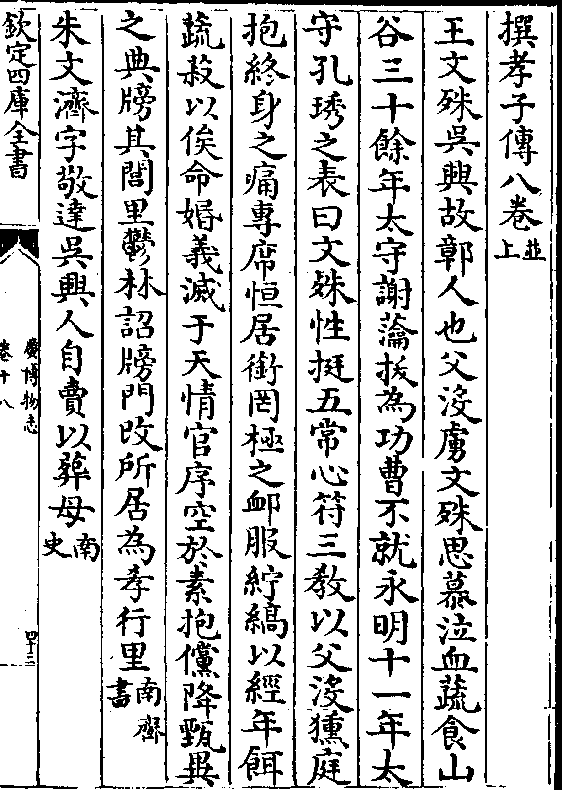 撰孝子傳八卷並上
王文殊吳興故鄣人也父沒虜文殊思慕泣血蔬食山
谷三十餘年太守謝瀹拔為功曹不就永明十一年太
守孔琇之表曰文殊性挺五常心符三教以父沒獯庭
抱終身之痛專席恒居銜罔極之䘏服紵縞以經年餌
蔬菽以俟命婚義滅于天情官序空於素抱儻降甄異
之典牓其閭里鬱林詔牓門改所居為孝行里南齊書
朱文濟字敬達吳興人自賣以葬母南史
欽定四庫全書
廣博物志
卷十八
四十三